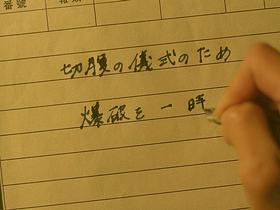 番號
切腹の儀式のため
爆破を一時